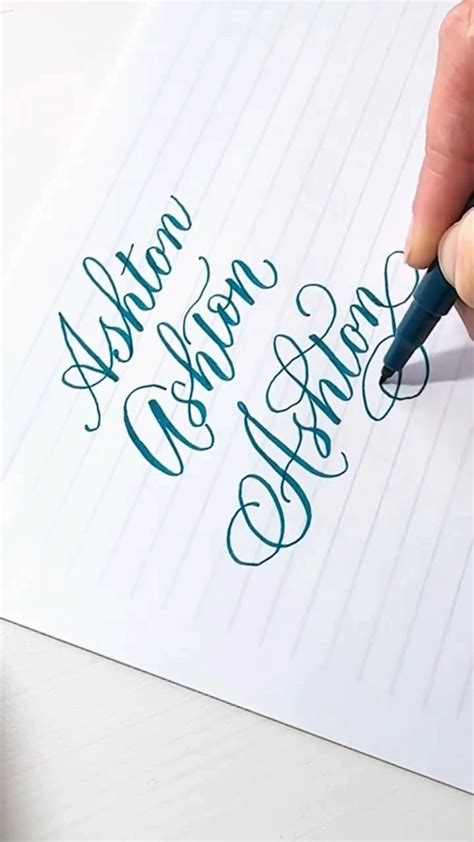 Ashton
Ashton
Ashton